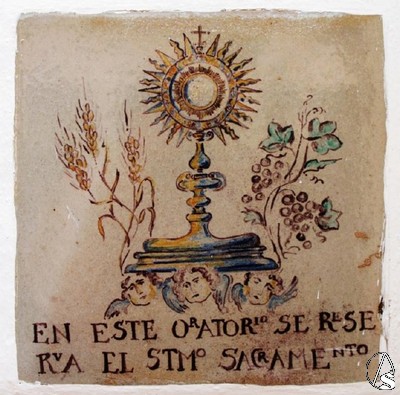 EN ESTE ORATORIO SE RESE
RVA EL STMO SACRAMENTO